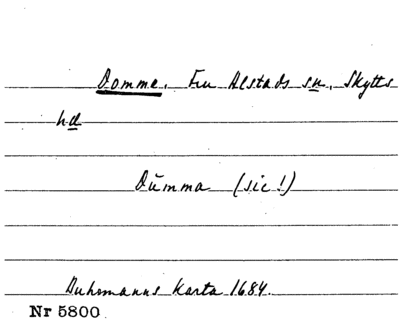 Domme, Fru Alstads sn, Skytts
hd
Dūmma (sic!)
Buhrmanns Karta 1684.
Nr 5800